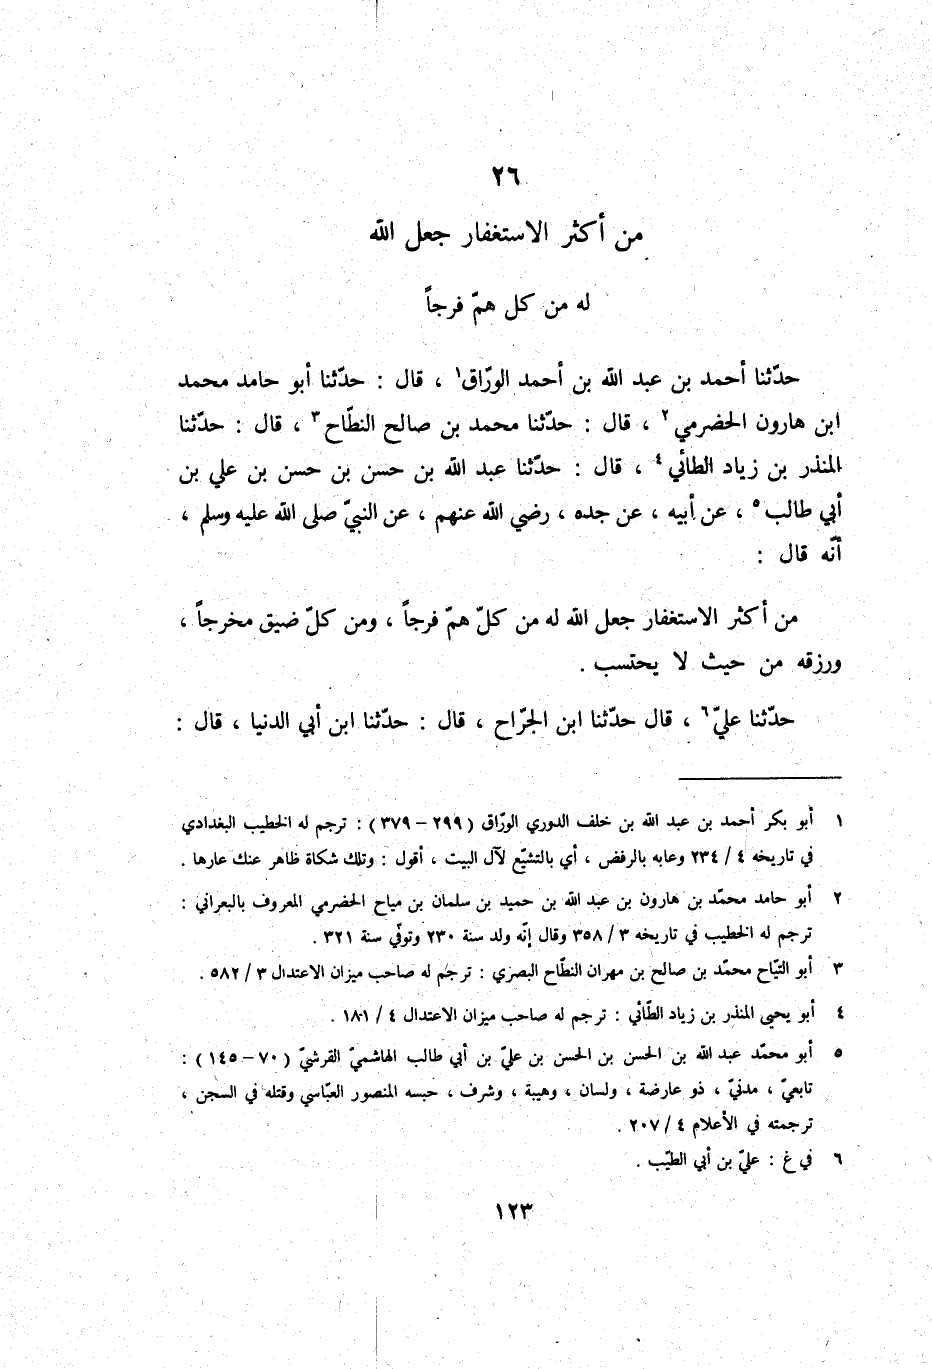 ٢٦
من أكثر الاستغفار جعل الله
له من كل همّ فرجاً
حدّثنا أحمد بن عبد الله بن أحمد الورّاق١ ، قال : حدّثنا أبو حامد محمد
ابن هارون الحضرمي٢ ، قال : حدّثنا محمد بن صالح النطّاح٣ ، قال : حدّثنا
المنذر بن زياد الطائي٤ ، قال : حدّثنا عبد الله بن حسن بن حسن بن علي بن
أبي طالب٥ ، عن أبيه ، عن جده ، رضي الله عنهم ، عن النبيّ صلى الله عليه وسلم ،
أنّه قال :
من أكثر الاستغفار جعل الله له من كلّ همّ فرجاً ، ومن كلّ ضيق مخرجاً ،
ورزقه من حيث لا يحتسب .
حدّثنا عليّ٦ ، قال حدّثنا ابن الجرّاح ، قال : حدّثنا ابن أبي الدنيا ، قال :
١ أبو بكر أحمد بن عبد الله بن خلف الدوري الورّاق (٢٩٩ – ٣٧٩) : ترجم له الخطيب البغدادي
في تاريخه ٤ / ٢٣٤ وعابه بالرفض ، أي بالتشيّع لآل البيت ، أقول : وتلك شكاة ظاهر عنك عارها .
٢ أبو حامد محمّد بن هارون بن عبد الله بن حميد بن سلمان بن مياح الحضرمي المعروف بالبعراني :
ترجم له الخطيب في تاريخه ٣ / ٣٥٨ وقال إنّه ولد سنة ٢٣٠ وتوفّي سنة ٣٢١ .
٣ أبو التيّاح محمّد بن صالح بن مهران النطّاح البصري : ترجم له صاحب ميزان الاعتدال ٣ / ٥٨٢ .
٤ أبو يحيى المنذر بن زياد الطّائي : ترجم له صاحب ميزان الاعتدال ٤ / ١٨١ .
٥ أبو محمّد عبد الله بن الحسن بن الحسن بن عليّ بن أبي طالب الهاشميّ القرشيّ (٧٠ – ١٤٥) :
تابعيّ ، مدنيّ ، ذو عارضة ، ولسان ، وهيبة ، وشرف ، حبسه المنصور العبّاسي وقتله في السجن ،
ترجمته في الأعلام ٤ / ٢٠٧ .
٦ في غ : عليّ بن أبي الطيّب .
١٢٣